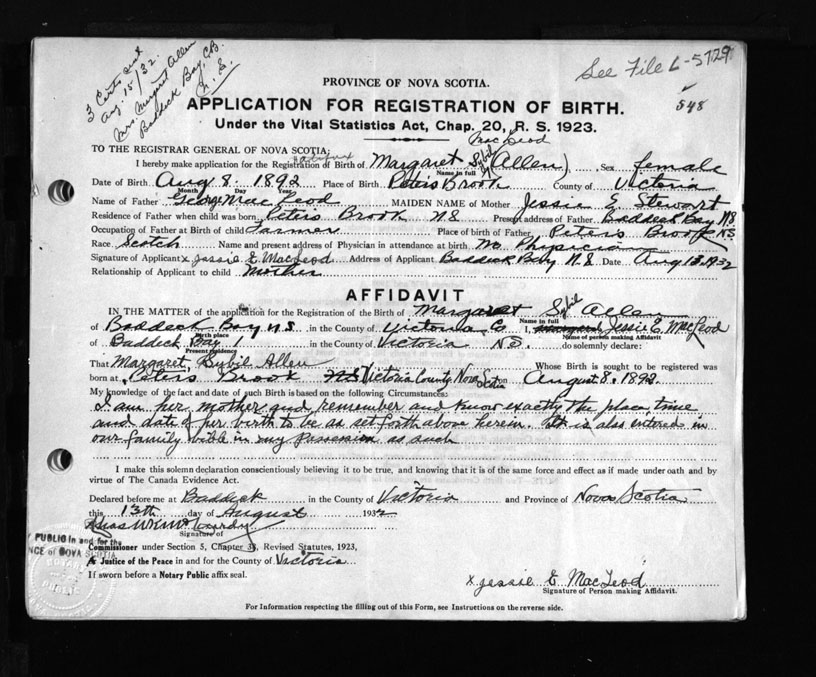 See File L-5729
548
3 Certs sent
Aug. 15/32.
Mrs. Margaret Allen
Baddeck Bay, C.B.
N. S.
PROVINCE OF NOVA SCOTIA.
APPLICATION FOR REGISTRATION OF BIRTH.
Under the Vital Statistics Act, Chap. 20, R. S. 1923.
TO THE REGISTRAR GENERAL OF NOVA SCOTIA:
MacLeod
I hereby make application for the Registration of Birth of Margaret Sybil (Allen) Sex female
Name in full
Date of Birth Aug 8. 1892 Place of Birth Peters Brook County of Victoria
Month Day Year
Name of Father George MacLeod MAIDEN NAME of Mother Jessie E Stewart
Residence of Father when child was born Peters Brook NS Present address of Father Baddeck Bay NS
Occupation of Father at Birth of child Farmer Place of birth of Father Peters Brook NS
Race Scotch Name and present address of Physician in attendance at birth No Physician
Signature of Applicant x Jessie E MacLeod Address of Applicant Baddeck Bay N.S Date Aug 13, 1932
Relationship of Applicant to child Mother
AFFIDAVIT
IN THE MATTER of the application for the Registration of the Birth of Margaret Sybil Allen
Name in full
of Baddeck Bay N.S in the County of Victoria Co I, Jessie E. MacLeod
Birth place Name of person making Affidavit
of Baddeck Bay in the County of Victoria NS. do solemnly declare:
Present residence
That Margaret Sybil Allen Whose Birth is sought to be registered was
born at Peters Brook NS Victoria County Nova Scotia on August 8, 1892.
My knowledge of the fact and date of such Birth is based on the following Circumstances:
I am her mother and remember and know exactly the place, time
and date of her birth to be as set forth above herein. It is also entered in
our family bible in my possession as such
I make this solemn declaration conscientiously believing it to be true, and knowing that it is of the same force and effect as if made under oath and by
virtue of The Canada Evidence Act.
Declared before me at Baddeck in the County of Victoria and Province of Nova Scotia
this 13th day of August 1932
Signature of
PUBLIC in and for the
NCE of NOVA SCOTIA
Commissioner under Section 5, Chapter 38, Revised Statutes, 1923,
A Justice of the Peace in and for the County of Victoria
If sworn before a Notary Public affix seal.
NOTARY
PUBLIC
x Jessie E MacLeod
Signature of Person making Affidavit.
For Information respecting the filling out of this Form, see Instructions on the reverse side.